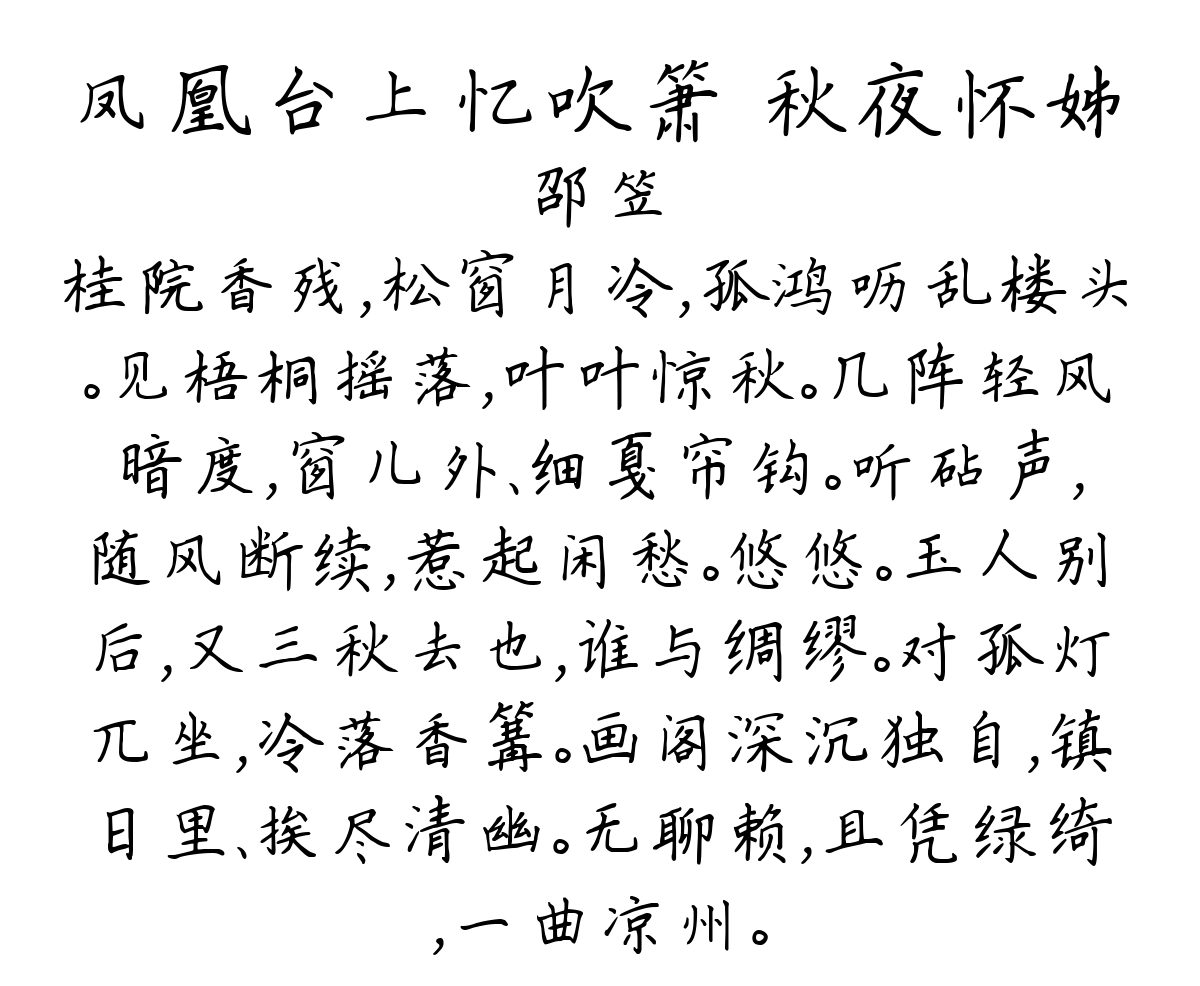 凤凰台上忆吹箫 秋夜怀姊
邵笠
桂院香残,松窗月冷,孤鸿呖乱楼头
。见梧桐摇落,叶叶惊秋。几阵轻风
暗度,窗儿外、细戛帘钩。听砧声,
随风断续,惹起闲愁。悠悠。玉人别
后,又三秋去也,谁与绸缪。对孤灯
兀坐,冷落香篝。画阁深沉独自,镇
日里、挨尽清幽。无聊赖,且凭绿绮
,一曲凉州。